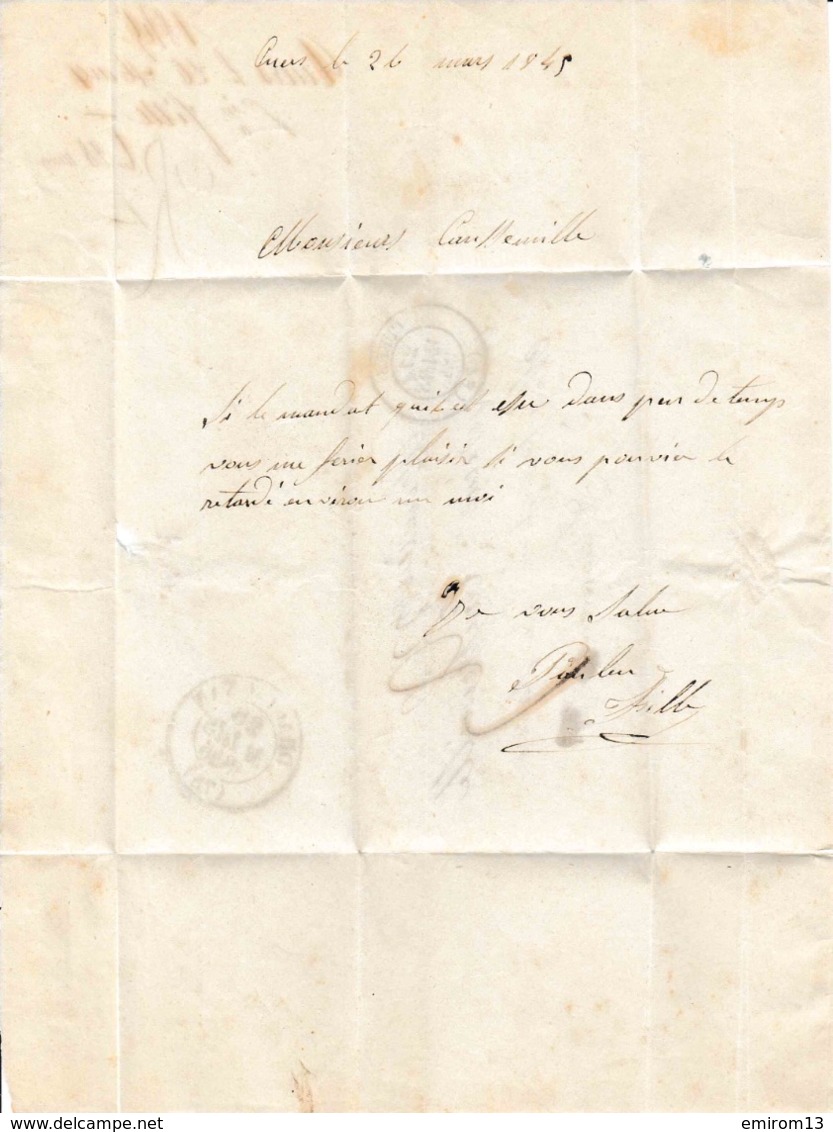 Cuers le 26 mars 1845
Monsieurs Caussemille
Si le mandat quil est dans peu de temps
vous me ferier plaisir si vous pouvier le
retardé environ un moi
Je vous Salue
delcampe.net
emirom13